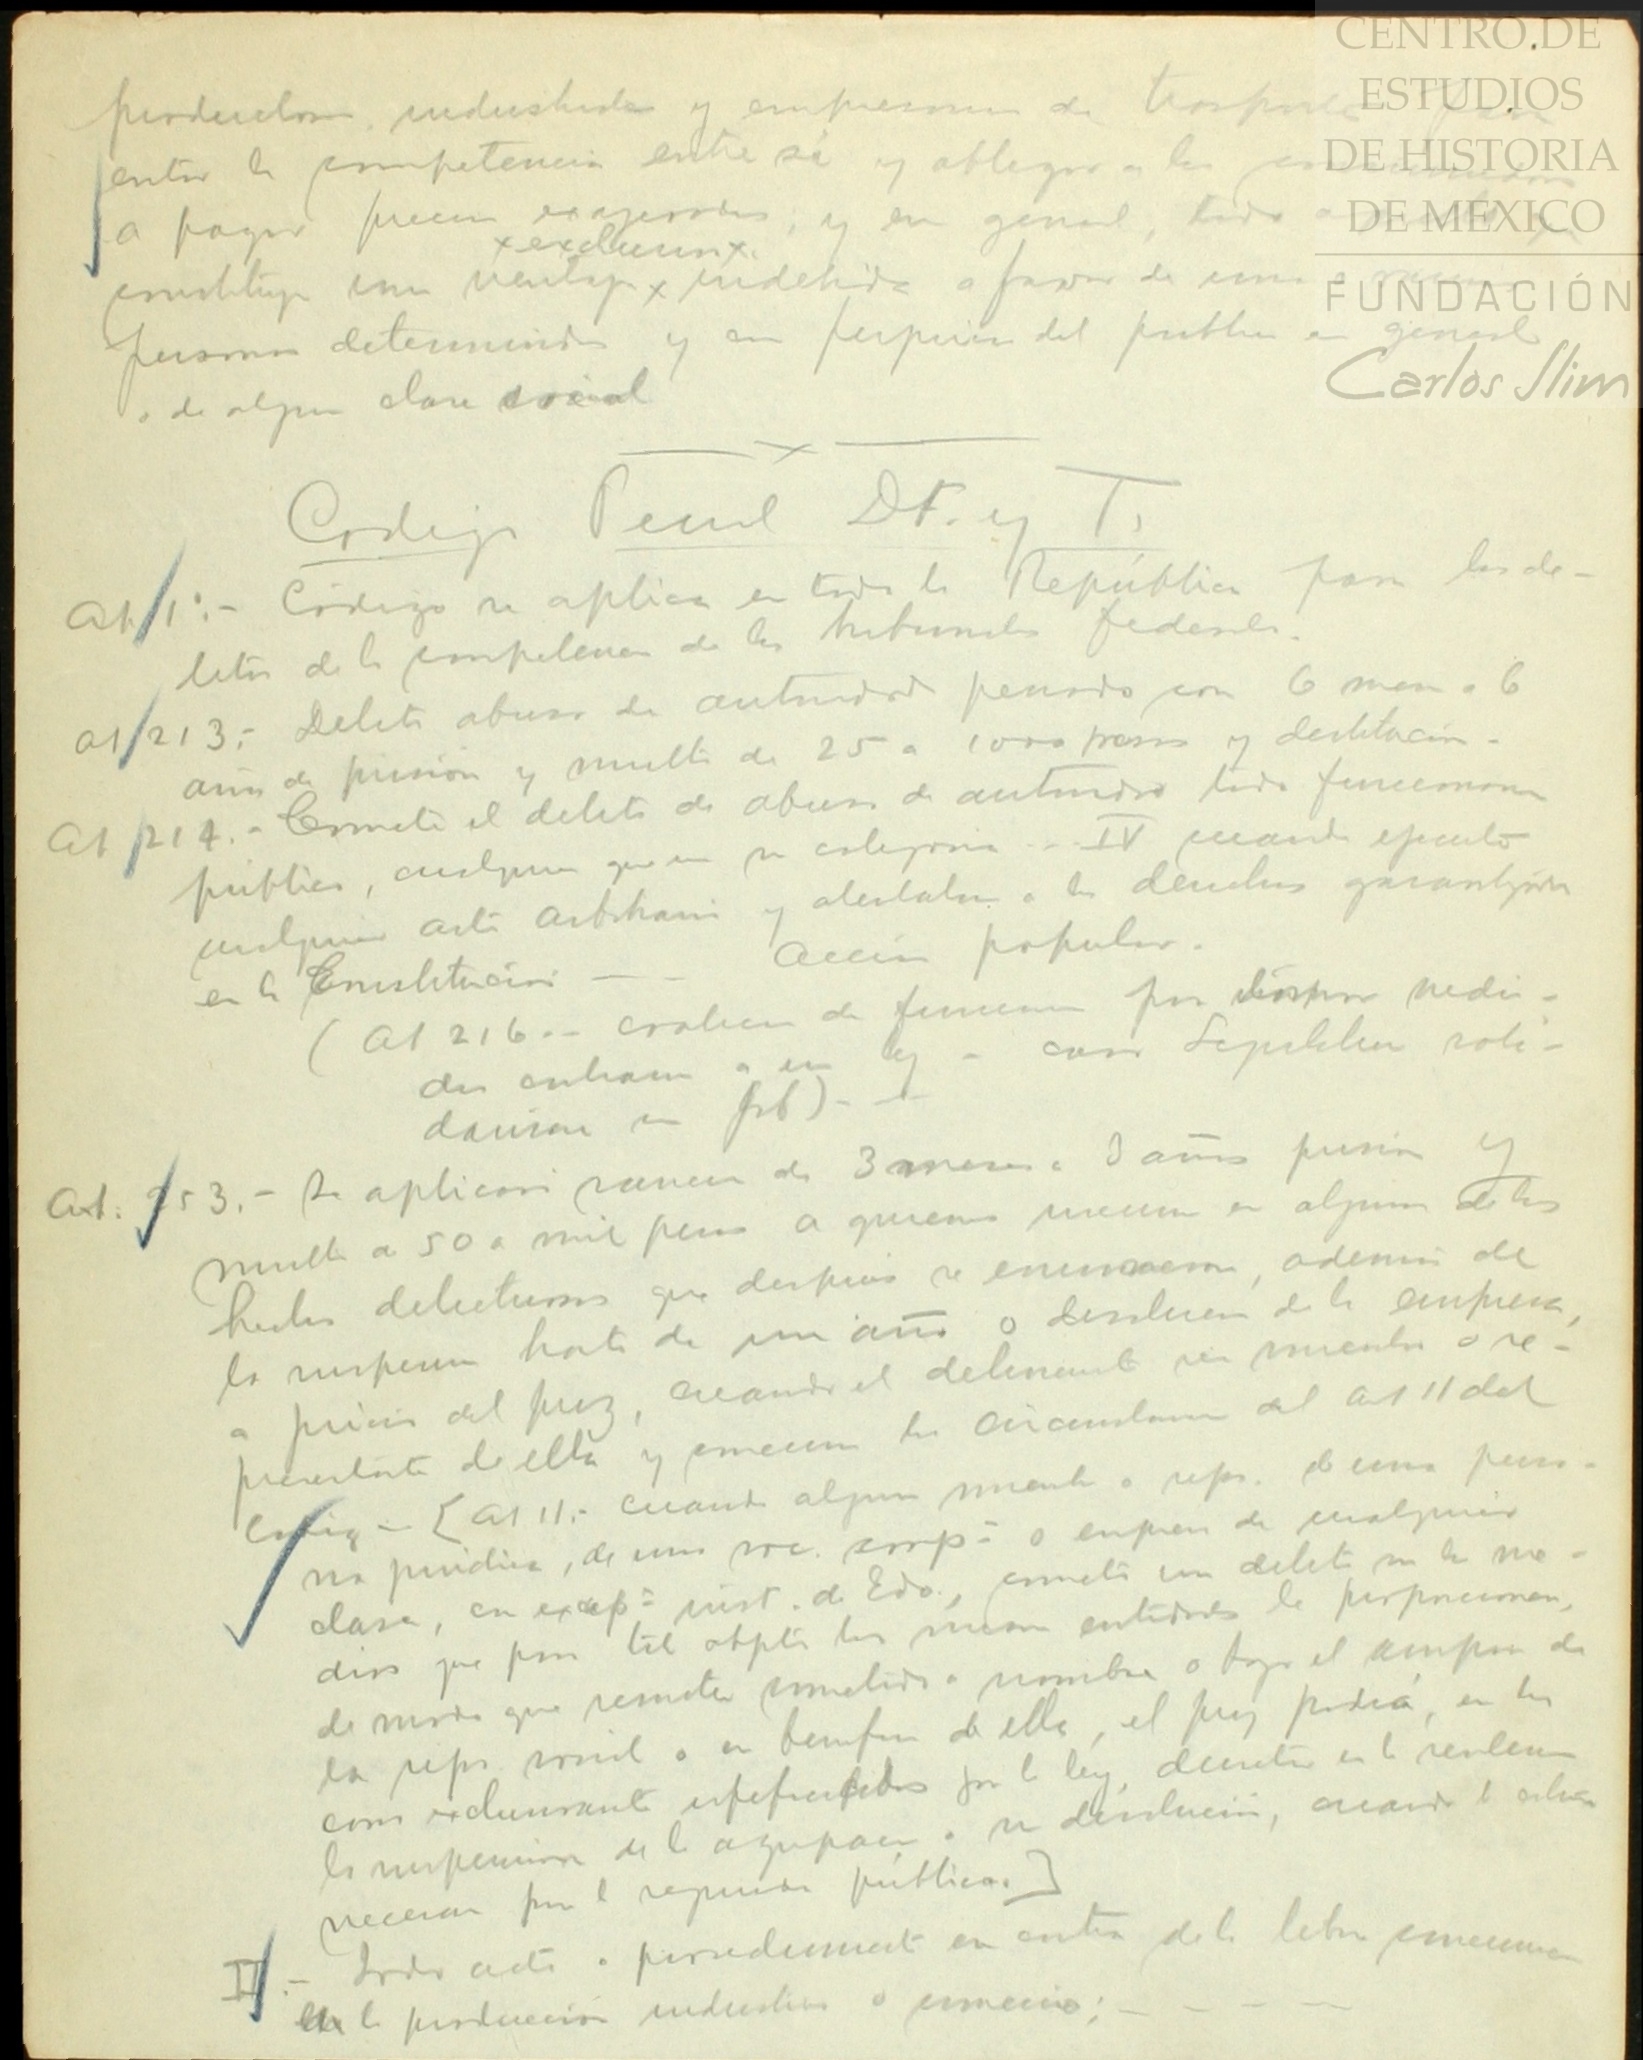 CENTRO DE
ESTUDIOS
DE HISTORIA
DE MÉXICO
FUNDACIÓN
Carlos Slim
productores, industriales y empresarios de trasportes para
evitar la competencia entre sí y obligar a los consumidores
a pagar precios exagerados, y en general, todo
x exclusiva x
constituya una ventaja x indebida a favor de una o varias
personas determinadas y con perjuicio del publico en general
o de alguna clase social
x
Codigo Penal DF. y T.
Art 1º.- Código se aplica en toda la República para los de-
litos de la competencia de los tribunales federales.
Art 213.- Delito abuso de autoridad penado con 6 meses a 6
años de prisión y multa de 25 a 1000 pesos y destitución.
Art 214.- Comete el delito de abuso de autoridad todo funcionario
público, cualquiera que sea su categoria... IV cuando ejecute
cualquier acto arbitrario y atentatorio a los derechos garantizados
en la Constitución — — Acción popular.
(Art 216.- coalicion de funcionarios por tomar medi-
das contrarias a una ley - caso
Art. 253.- Se aplicará sancion de 3 meses a 3 años prision y
multa de 50 a mil pesos a quienes incurran en alguno de los
hechos delictuosos que despues se enumeran, además de
la suspension hasta de un año o disolucion de la empresa,
a juicio del juez, cuando el delincuente sea miembro o re-
presentante de ella y concurran las circunstancias del art 11 del
Codigo - [Art 11.- cuando algun miembro o repr. de una perso-
na juridica, de una soc. corpº o empresa de cualquier
clase, con excepº inst. de Edo., cometa un delito con los me-
dios que para tal objeto las mismas entidades le proporcionen,
de modo que resulte cometido a nombre o bajo el amparo de
la repr. social o en beneficio de ella, el juez podrá, en los
casos exclusivamente especificados por la ley, decretar en la sentencia
la suspension de la agrupacion o su disolución, cuando lo estime
necesario para la seguridad pública.]
II.- Todo acto o procedimiento en contra de la libre concurrencia
en la producción industrial o comercio; - - - -